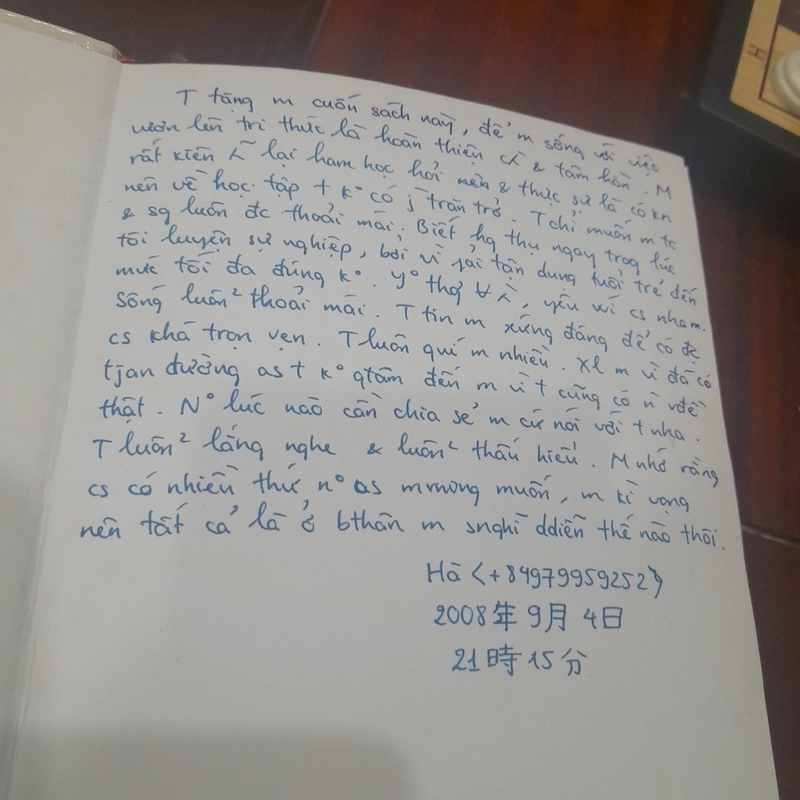 T tặng m cuốn sách này, để m sống với việc
vươn lên tri thức là hoàn thiện & tâm hồn. M
rất kiên lại ham học hỏi nên & thực sự là có kn
nên về học tập t k° có j trăn trở. T chỉ muốn m tc
& sg luôn đc thoải mái. Biết hg thụ ngay trog lúc
tôi luyện sự nghiệp, bởi vì fải tận dung tuổi trẻ đến
mức tối đa đúng k°. y° thg ∀, yêu vì cs nham.
Sống luôn² thoải mái. T tin m xứng đáng để có đc
cs khá trọn vẹn. T luôn quí m nhiều. Xl m vì đã có
tjan đường as t k° qtâm đến m vì t cũng có n vđề
thật. N° lúc nào cần chia sẻ m cứ nói với t nha.
T luôn² lắng nghe & luôn² thấu hiểu. M nhớ rằng
cs có nhiều thứ n° as mmong muốn, m kì vọng
nên tất cả là ở bthân m snghĩ ddiễn thế nào thôi.
Hà <+84979959252>
2008年 9月 4日
21時 15分